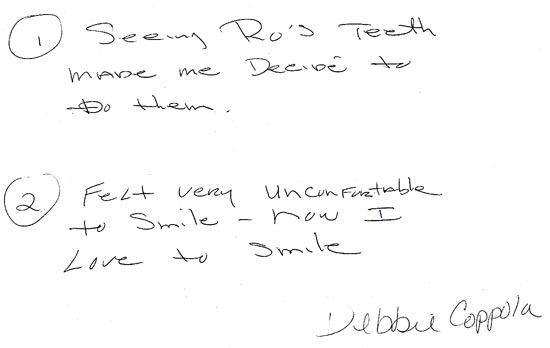 ① Seeing Ro's Teeth
made me Decide to
Do them.
② Felt very unconfortrable
to Smile - now I
Love to smile
Debbie Coppola